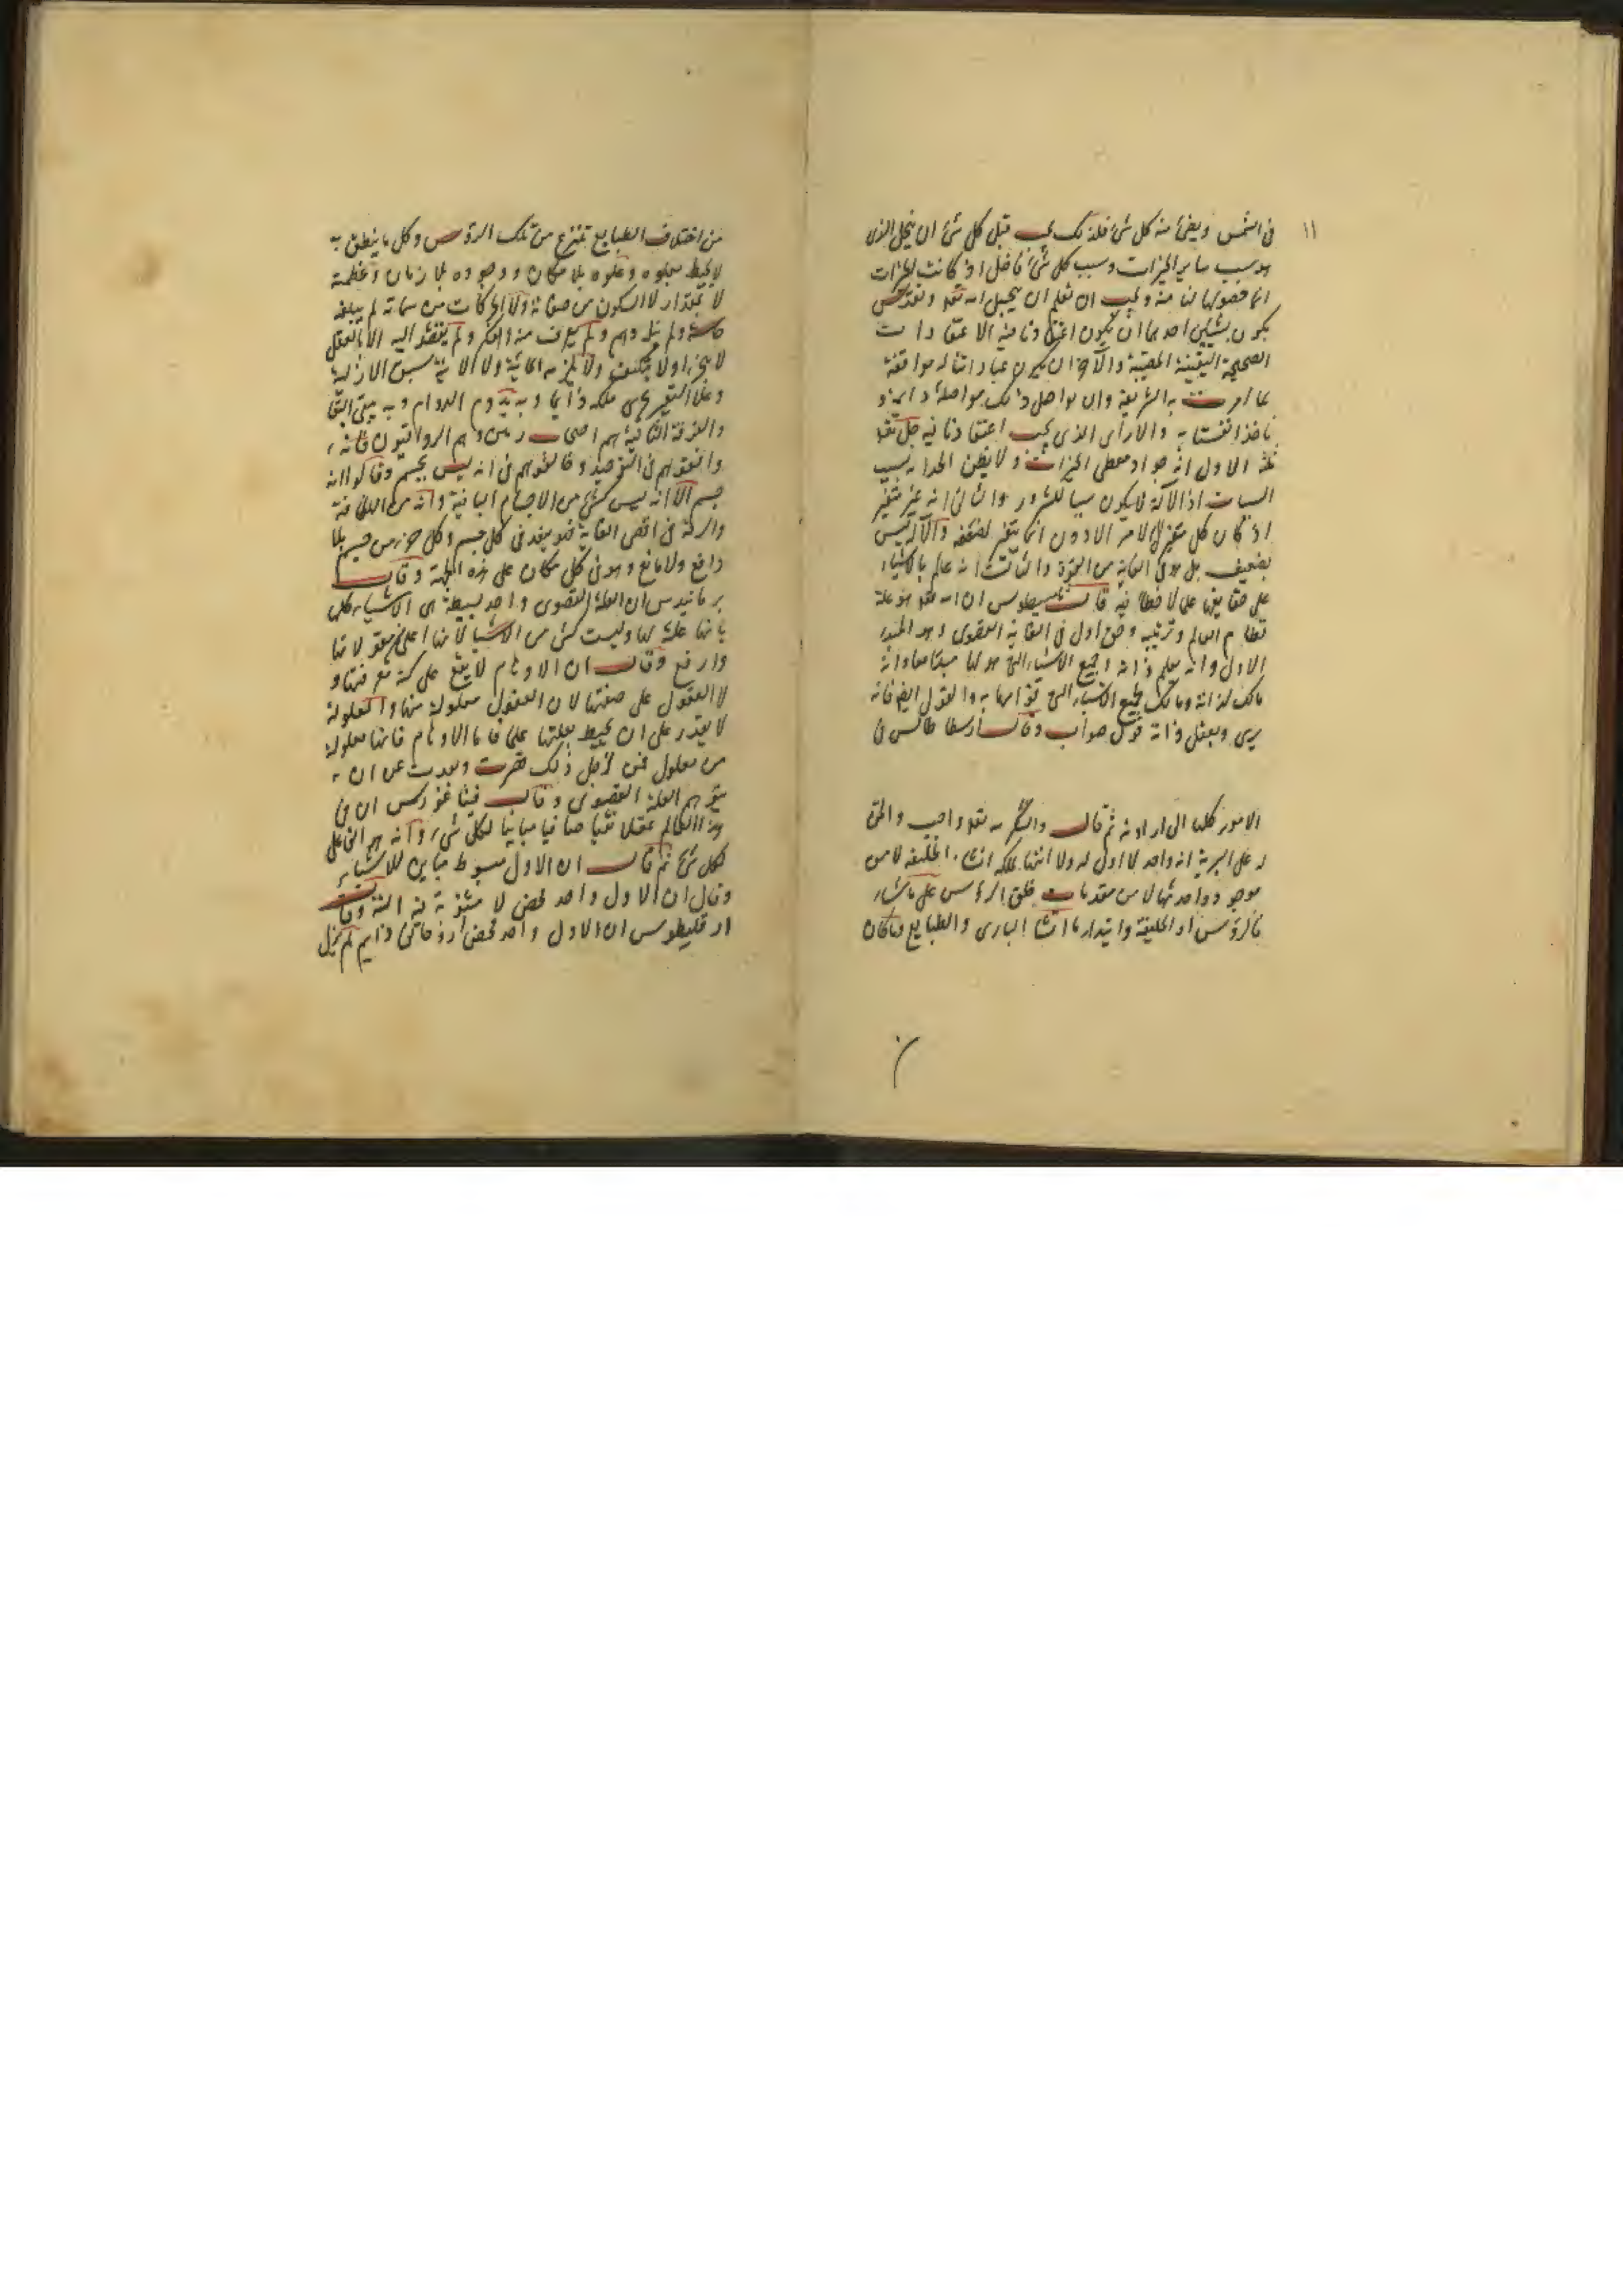 ١١
في الشمس ويضئ منه كل شئ فلذلك يجب قبل كل شئ ان يجل الذى
هو سبب ساير الخيرات وسبب كل شئ فاضل اذ كانت الخيرات
انما حصولها لنا منه ويجب ان تعلم ان تبجيل الله تعالى وتقديس
يكون بشيئين احدهما ان يكون اعتقادنا فيه الاعتقادات
الصحيحة اليقينية والآخر ان يكون عباداتنا له موافقة
لما امرت به الشريعة وان نواصل ذلك مواصلة دايمة و
ناخذ انفسنا به والارأى الذى يجب اعتقادنا فيه جل تعالى
ثلثة الاول انه جواد معطى الخيرات ولا يظن احد انه سبب
السيات اذ الآله لا يكون سببا للشرور والثانى انه غير متغير
اذ كان كل متغير الى الامر الادون انما يتغير لضعفه والآله ليس
بضعيف بل هو فى الغاية من القوة والثالث انه عالم بالاشياء
على حقايقها على لا خطا فيه قال ثامسطيوس ان الله تعالى هو علة
نظام العالم وترتيبه وحق اول فى الغاية القصوى وهو المبدء
الاول وانه يعلم ذاته وجميع الاشياء التى هو لها مبدا معا وانه
مالك لذاته ومالك لجميع الاشياء التى قوامها به والقول ايضا فانه
يرى ويعقل ذاته قول صواب وقال ارسطاطاليس فى
الامور كلها الى ارادته ثم قال والشكر لله تعالى واجب والحق
له على البرية انه واحد لا اول له ولا انتها لملكه انشاء الخليقة لا من
موجود واحدثها لا من متقدمات خلق الرؤس على ما شاء
فالرؤس اول الخليقة وابتداء ما انشا البارى والطبايع وما كان
من اختلاف الطبايع تتفرع من تلك الرؤس وكل ما ينطق به
لا يحيط بعلوه وعلوه بلا مكان ووجوده بلا زمان وعظمته
لا بمقدار لا السكون من صفاته ولا الحركات من سماته لم يبلغه
حاسة ولم ينله وهم ولم يعرف منه والفكر ولم ينفذ اليه الا بالعقل
لا يتجزا ولا يتكيف ولا يلزمه الماية ولا الاينية سبق الازلية
وعلا التغير يجرى ملكه دايما وبه يدوم الدوام وبه يبقى البقا
والفرقة الثانية هم اصحاب زينون وهم الرواقيون فانه
وافقوهم فى التوحيد وخالفوهم فى انه ليس بجسم وقالوا انه
جسم الا انه ليس كشئ من الاجسام الباقية وانه من اللطافة
والرقة فى اقصى الغاية فهو ينفذ فى كل جسم وكل جزء من جسم بلا
دافع ولا مانع وهو فى كل مكان على هذه الجهة وقال
برمانيدس ان العلة القصوى واحد بسيطة هى الاشياء كلها
بانها علة لها وليست كشئ من الاشيا لانها اعلى من معلولاتها
وارفع وقال ان الاوهام لا يقع على كنه معرفتها و
لا العقول على صفتها لان العقول معلولة منها والمعلولة
لا يقدر على ان يحيط بعلتها علما فاما الاوهام فانها معلولة
من معلول فمن اجل ذلك قصرت وبعدت عن ان
يتوهم العلة القصوى وقال فيثاغورس ان فى
هذا العالم عقلا نقيا صافيا مباينا لكل شئ وانه هو الفاعل
لكل شئ ثم قال ان الاول مبسوط مباين للاشياء
وقال ان الاول واحد محض لا مثنوية فيه البتة وقال
ارقليطوس ان الاول واحد محض روحانى دايم لم يزل